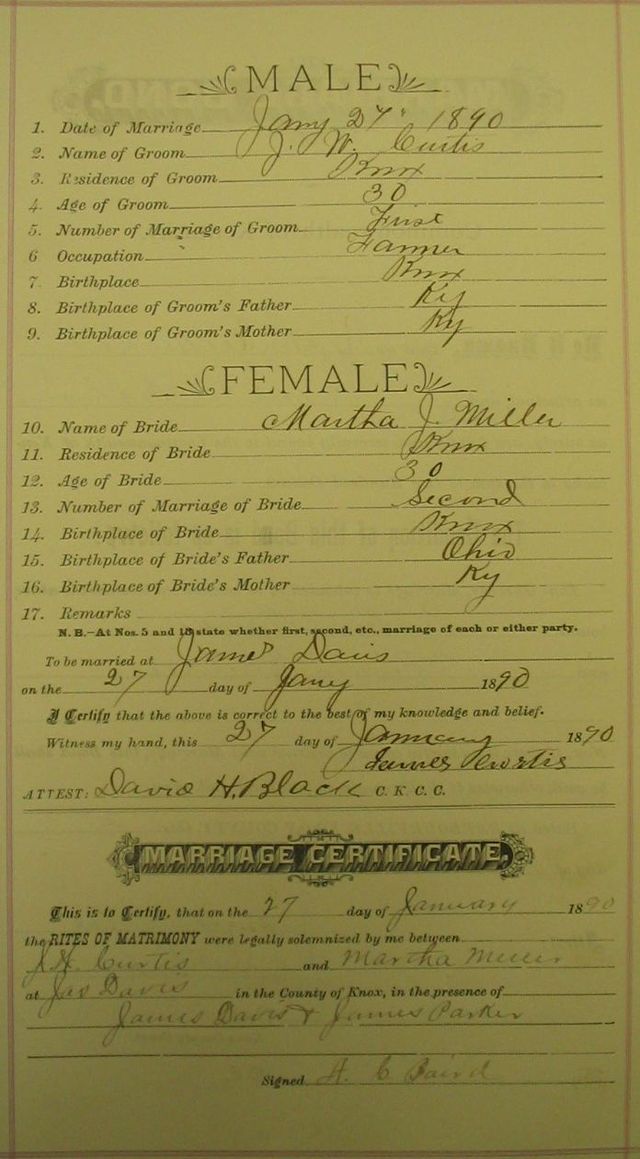 MALE
1. Date of Marriage Jany 27" 1890
2. Name of Groom J. W. Curtis
3. Residence of Groom Knox
4. Age of Groom 30
5. Number of Marriage of Groom First
6 Occupation Farmer
7. Birthplace Knox
8. Birthplace of Groom's Father Ky
9. Birthplace of Groom's Mother Ky
FEMALE
10. Name of Bride Martha J. Miller
11. Residence of Bride Knox
12. Age of Bride 30
13. Number of Marriage of Bride Second
14. Birthplace of Bride Knox
15. Birthplace of Bride's Father Ohio
16. Birthplace of Bride's Mother Ky
17. Remarks
N. B.—At Nos. 5 and 13 state whether first, second, etc., marriage of each or either party.
To be married at James Davis
on the 27 day of Jany 1890
I Certify that the above is correct to the best of my knowledge and belief.
Witness my hand, this 27 day of January 1890
James Curtis
ATTEST: David H. Black C. K. C. C.
MARRIAGE CERTIFICATE.
This is to Certify, that on the 27 day of January 1890
the RITES OF MATRIMONY were legally solemnized by me between
Curtis and Martha Miller
at Jas Davis in the County of Knox, in the presence of
James Davis & James Parker
Signed A. C Baird